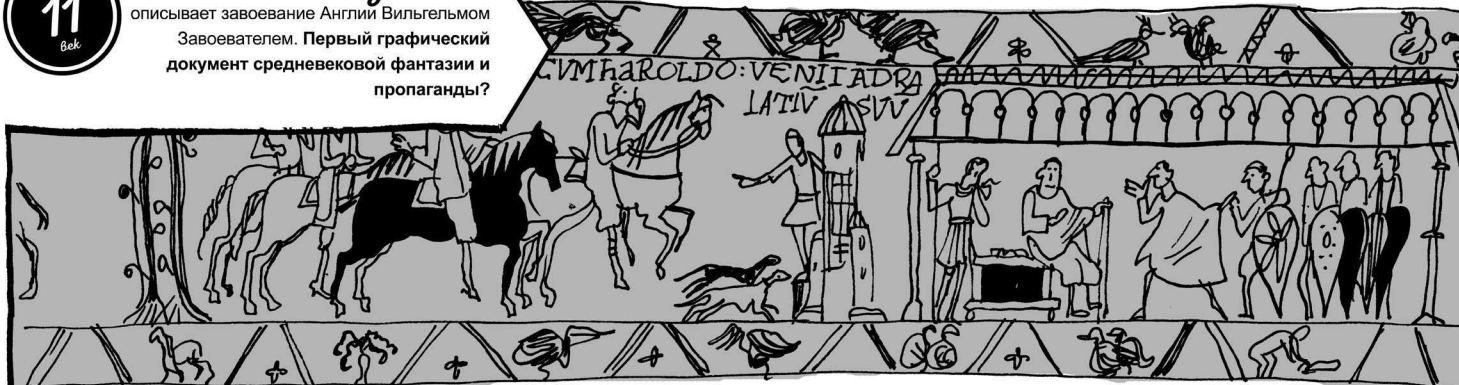 11
век
описывает завоевание Англии Вильгельмом
Завоевателем. Первый графический
документ средневековой фантазии и
пропаганды?
CVM hAROLDO : VENIT AD PA
LATIV SVV